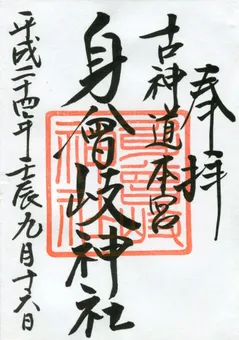 奉拝
古神道本宮
身曾岐神社
平成二十四年壬辰九月十六日